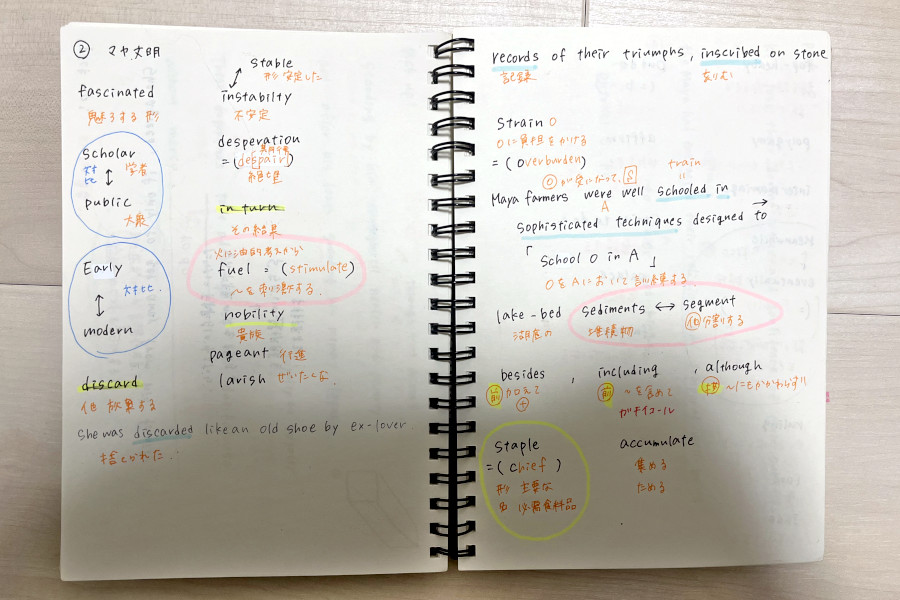 ② マヤ文明
fascinated
魅了する 形
Scholar
対比 ↕ 学者
public
大衆
Early
↕ 対比.
modern
discard
他 放棄する
she was discarded like an old shoe by ex-lover
捨てられた.
stable
形 安定した
instabilty
不安定
desperation
=(despair)
絶望
in turn
その結果
火に油的考えから
fuel = (stimulate)
〜を刺激する.
nobility
貴族
pageant 行進
lavish ぜいたくな
records of their triumphs, inscribed on stone
記録
Strain O
Oに負担をかける
=(overburden)
train
Maya farmers were well schooled in
A
sophisticated techniques designed to
「School O in A」
OをAにおいて訓練する
lake-bed sediments ↔ segment
湖底の 堆積物 他 分割する
besides , including , although
前 加えて 前 〜を含めて 接 〜にもかかわらず
+ がチイコール
Staple
=(chief)
形 主要な
名 必需食料品
accumulate
集める
ためる